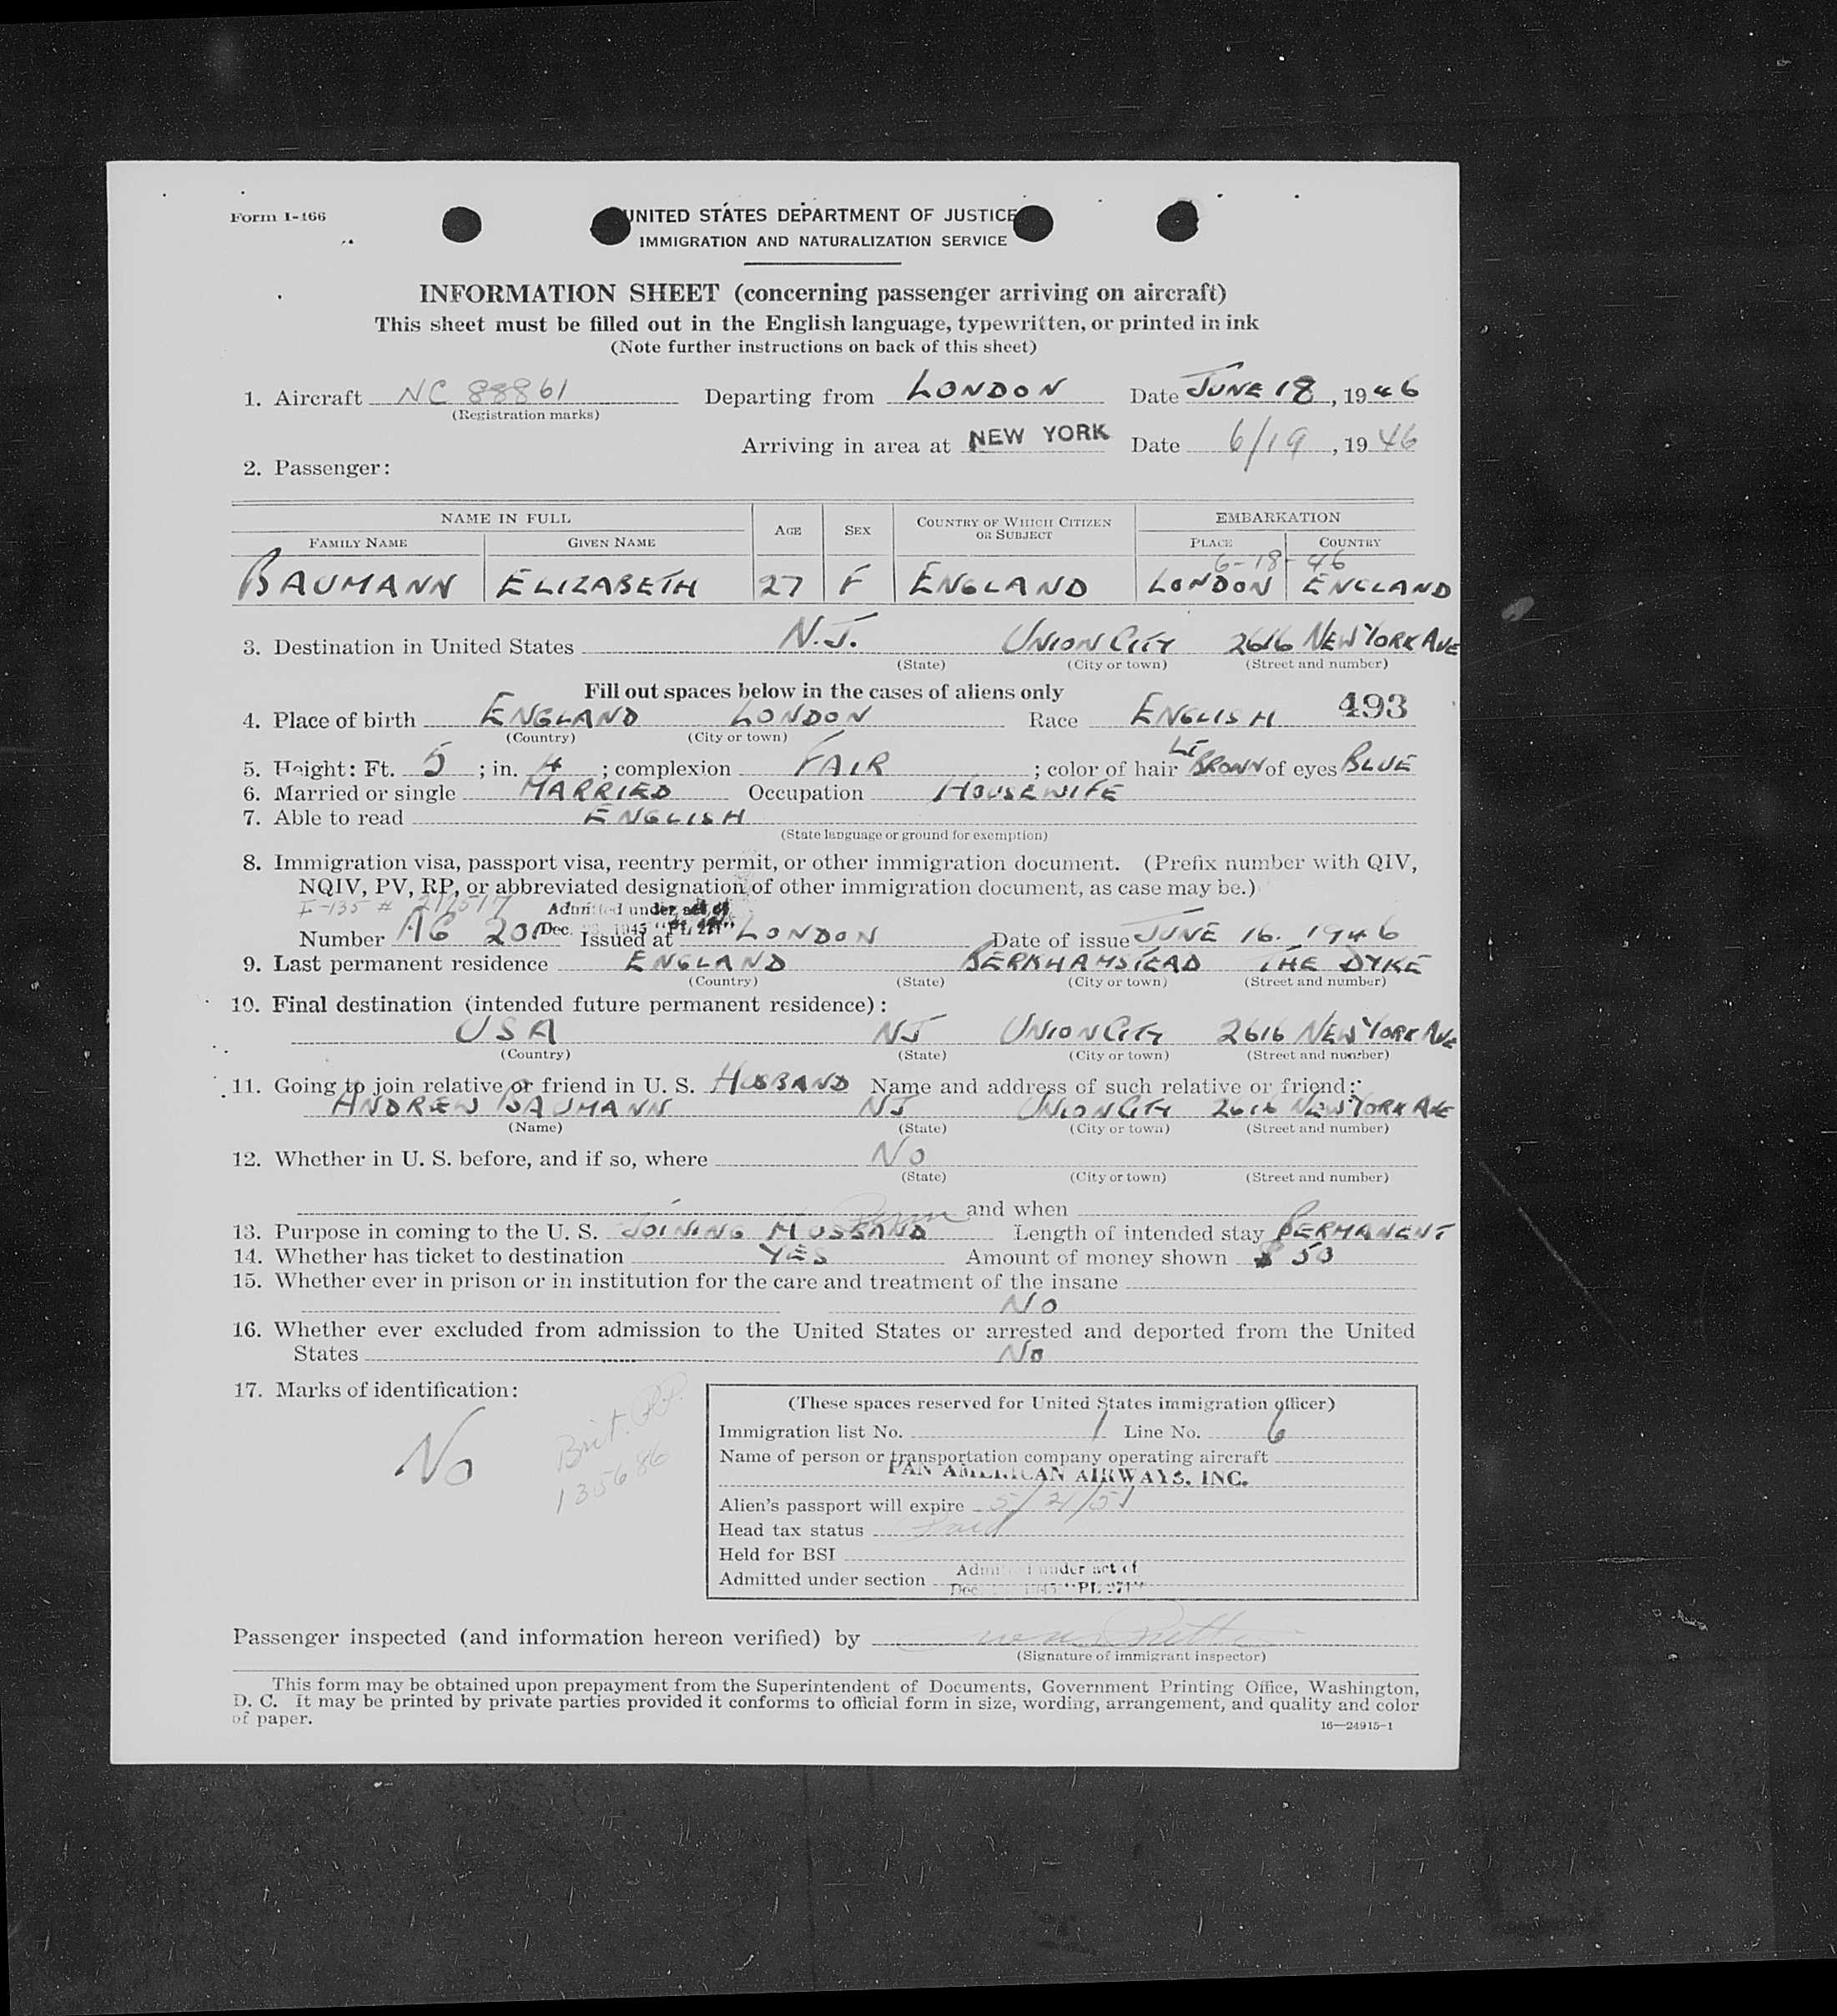 Form I-466
UNITED STATES DEPARTMENT OF JUSTICE
IMMIGRATION AND NATURALIZATION SERVICE
INFORMATION SHEET (concerning passenger arriving on aircraft)
This sheet must be filled out in the English language, typewritten, or printed in ink
(Note further instructions on back of this sheet)
1. Aircraft NC 88861 Departing from LONDON Date JUNE 18, 1946
(Registration marks)
Arriving in area at NEW YORK Date 6/19, 1946
2. Passenger:
NAME IN FULL AGE SEX COUNTRY OF WHICH CITIZEN OR SUBJECT EMBARKATION
FAMILY NAME GIVEN NAME PLACE COUNTRY
6-18-46
BAUMANN ELIZABETH 27 F ENGLAND LONDON ENGLAND
3. Destination in United States N.J. UNION CITY 2616 NEW YORK AVE
(State) (City or town) (Street and number)
Fill out spaces below in the cases of aliens only
4. Place of birth ENGLAND LONDON Race ENGLISH 493
(Country) (City or town)
5. Height: Ft. 5; in. 4; complexion FAIR; color of hair LT BROWN of eyes BLUE
6. Married or single MARRIED Occupation HOUSEWIFE
7. Able to read ENGLISH
(State language or ground for exemption)
8. Immigration visa, passport visa, reentry permit, or other immigration document. (Prefix number with QIV,
NQIV, PV, RP, or abbreviated designation of other immigration document, as case may be.)
I-135 # Admitted under act of
Dec. 1945 "PL 271"
Number AG 201 Issued at LONDON Date of issue JUNE 16. 1946
9. Last permanent residence ENGLAND BERKHAMSTEAD THE DYKE
(Country) (State) (City or town) (Street and number)
10. Final destination (intended future permanent residence):
USA NJ UNION CITY 2616 NEW YORK AVE
(Country) (State) (City or town) (Street and number)
11. Going to join relative or friend in U. S. HUSBAND Name and address of such relative or friend:
ANDREW BAUMANN NJ UNION CITY 2616 NEW YORK AVE
(Name) (State) (City or town) (Street and number)
12. Whether in U. S. before, and if so, where NO
(State) (City or town) (Street and number)
and when
13. Purpose in coming to the U. S. JOINING HUSBAND Length of intended stay PERMANENT
14. Whether has ticket to destination YES Amount of money shown $ 50
15. Whether ever in prison or in institution for the care and treatment of the insane
NO
16. Whether ever excluded from admission to the United States or arrested and deported from the United
States NO
17. Marks of identification:
NO
Brit. PP.
135686
(These spaces reserved for United States immigration officer)
Immigration list No. 1 Line No. 6
Name of person or transportation company operating aircraft
PAN AMERICAN AIRWAYS, INC.
Alien's passport will expire 5/21/51
Head tax status Paid
Held for BSI
Admitted under section Admitted under act of
Dec. 1945 "PL 271"
Passenger inspected (and information hereon verified) by
(Signature of immigrant inspector)
This form may be obtained upon prepayment from the Superintendent of Documents, Government Printing Office, Washington,
D. C. It may be printed by private parties provided it conforms to official form in size, wording, arrangement, and quality and color
of paper.
16—24915-1